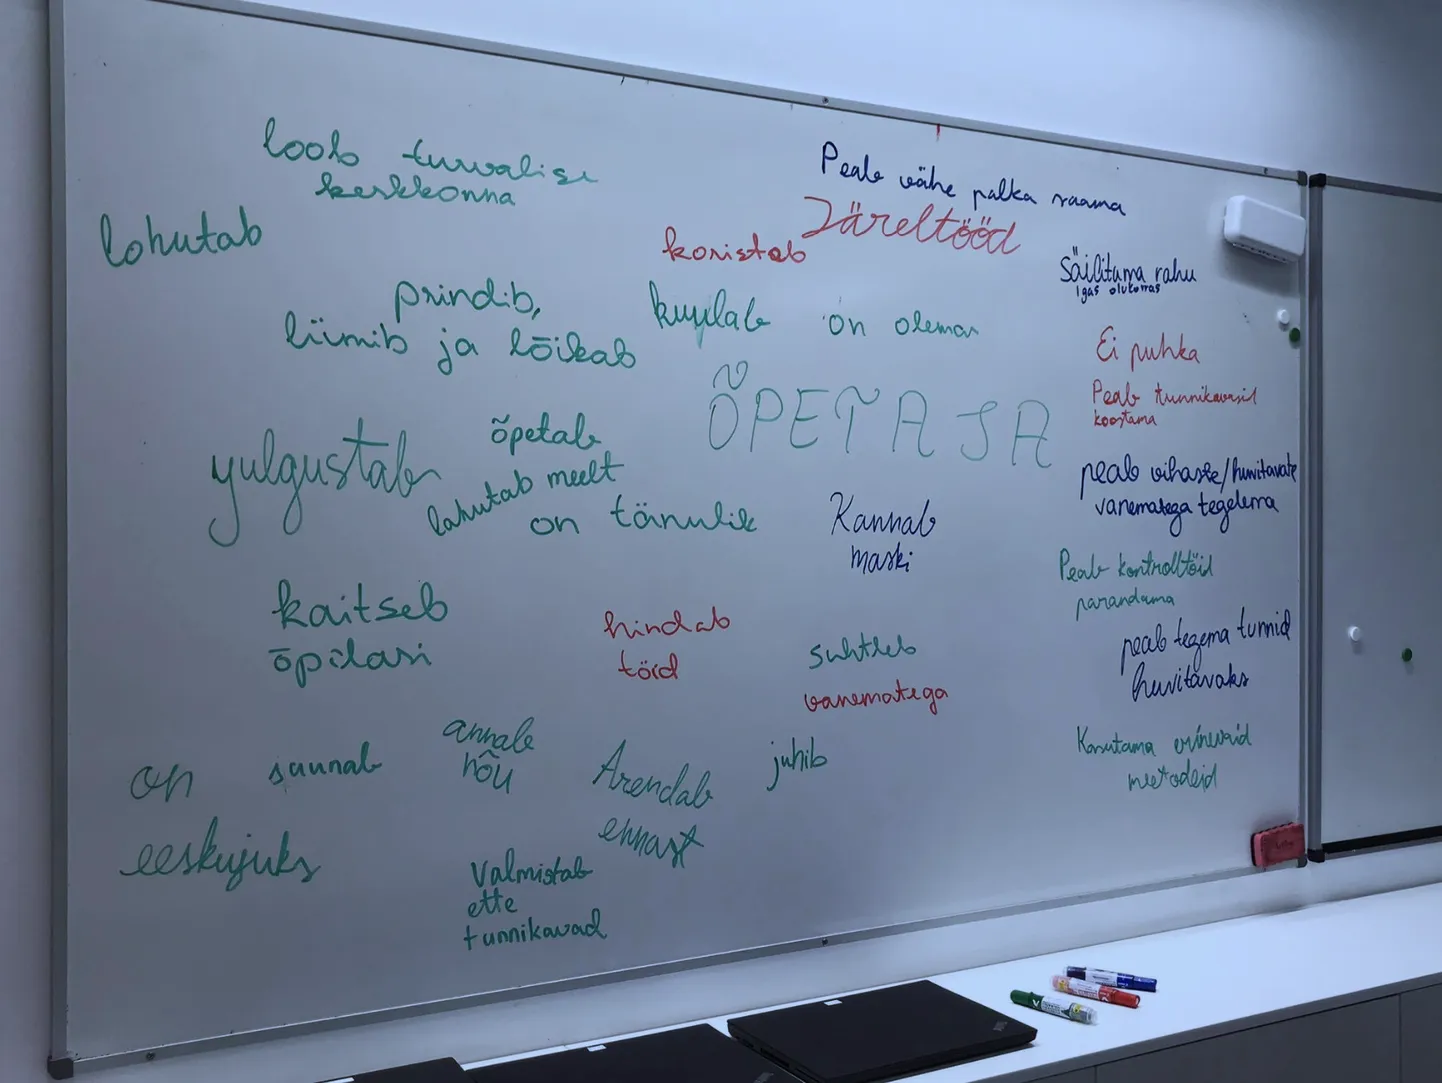 loob turvalise
keskkonna
Peab vähe palka saama
lohutab
Järeltööd
koristab
Säilitama rahu
igas olukorras
prindib,
liimib ja lõikab
kuulab
on olemas
Ei puhka
ÕPETAJA
Peab tunnikavasid
koostama
yulgustab
õpetab
lahutab meelt
on tänulik
peab vihaste/huvitavate
vanematega tegelema
Kannab
maski
Peab kontrolltöid
parandama
kaitseb
õpilasi
hindab
töid
suhtleb
vanematega
peab tegema tunnid
huvitavaks
on
eeskujuks
suunab
annab
nõu
Arendab
ennast
juhib
Kasutama erinevaid
meetodeid
Valmistab
ette
tunnikavad